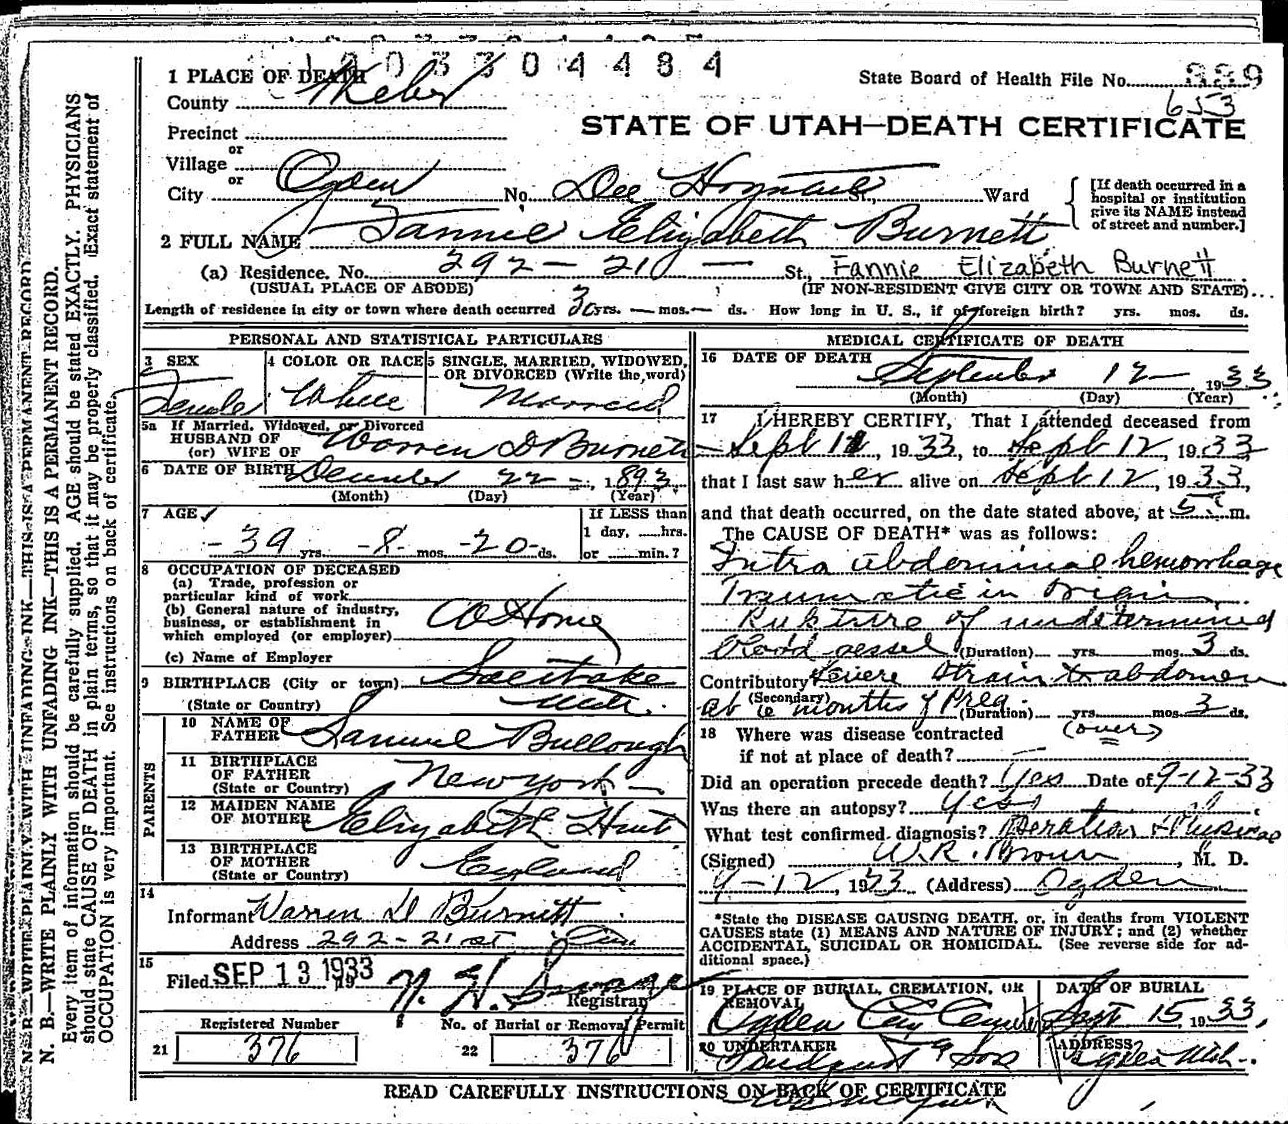 1 PLACE OF DEATH 1203304484
State Board of Health File No. 889
County Weber
653
Precinct
or
STATE OF UTAH—DEATH CERTIFICATE
Village
or
City Ogden No. Dee Hospital St., Ward
[If death occurred in a hospital or institution give its NAME instead of street and number.]
2 FULL NAME Fannie Elizabeth Burnett
(a) Residence. No. 292 - 21 St., Fannie Elizabeth Burnett
(USUAL PLACE OF ABODE) (IF NON-RESIDENT GIVE CITY OR TOWN AND STATE)
Length of residence in city or town where death occurred yrs. — mos. — ds. How long in U. S., if of foreign birth? yrs. mos. ds.
PERSONAL AND STATISTICAL PARTICULARS
3 SEX Female
4 COLOR OR RACE White
5 SINGLE, MARRIED, WIDOWED, OR DIVORCED (Write the word) Married
5a If Married, Widowed, or Divorced
HUSBAND OF
(or) WIFE OF Warren D Burnett
6 DATE OF BIRTH December 22 -, 1893
(Month) (Day) (Year)
7 AGE
- 39 yrs. - 8 - mos. - 20 - ds.
If LESS than
1 day, hrs.
or min.?
8 OCCUPATION OF DECEASED
(a) Trade, profession or
particular kind of work
(b) General nature of industry,
business, or establishment in
which employed (or employer) At Home
(c) Name of Employer
9 BIRTHPLACE (City or town) Salt Lake
(State or Country) Utah.
PARENTS
10 NAME OF
FATHER Samuel Bullough
11 BIRTHPLACE
OF FATHER
(State or Country) New York -
12 MAIDEN NAME
OF MOTHER Elizabeth Hunt
13 BIRTHPLACE
OF MOTHER
(State or Country) England
14
Informant Warren D Burnett
Address 292 - 21 st
15
Filed SEP 13 1933 19
Registrar
Registered Number
21 376
No. of Burial or Removal Permit
22 376
MEDICAL CERTIFICATE OF DEATH
16 DATE OF DEATH
September 12 - , 1933
(Month) (Day) (Year)
17 I HEREBY CERTIFY, That I attended deceased from
Sept 12, 1933, to Sept 12, 1933
that I last saw her alive on Sept 12, 1933,
and that death occurred, on the date stated above, at m.
The CAUSE OF DEATH* was as follows:
Intra abdominal hemorrhage
Traumatic in origin
Rupture of undetermined
blood vessel (Duration) yrs. mos. 3 ds.
Contributory Severe Strain to abdomen
(Secondary)
at 6 months of Preg. (Duration) yrs. mos. 3 ds.
18 Where was disease contracted (over)
if not at place of death?
Did an operation precede death? Yes Date of 9-12-33
Was there an autopsy? Yes
What test confirmed diagnosis? Operation & Physical
(Signed) W. R. Brown, M. D.
9-12, 1933 (Address) Ogden
*State the DISEASE CAUSING DEATH, or, in deaths from VIOLENT
CAUSES state (1) MEANS AND NATURE OF INJURY; and (2) whether
ACCIDENTAL, SUICIDAL OR HOMICIDAL. (See reverse side for ad-
ditional space.)
19 PLACE OF BURIAL, CREMATION, OR
REMOVAL
Ogden City Cemetery
DATE OF BURIAL
Sept 15, 1933,
20 UNDERTAKER
Lindquist & Sons
ADDRESS
Ogden Utah.
READ CAREFULLY INSTRUCTIONS ON BACK OF CERTIFICATE
N. B.—WRITE PLAINLY WITH UNFADING INK—THIS IS A PERMANENT RECORD.
Every item of information should be carefully supplied. AGE should be stated EXACTLY. PHYSICIANS
should state CAUSE OF DEATH in plain terms, so that it may be properly classified. Exact statement of
OCCUPATION is very important. See instructions on back of certificate.